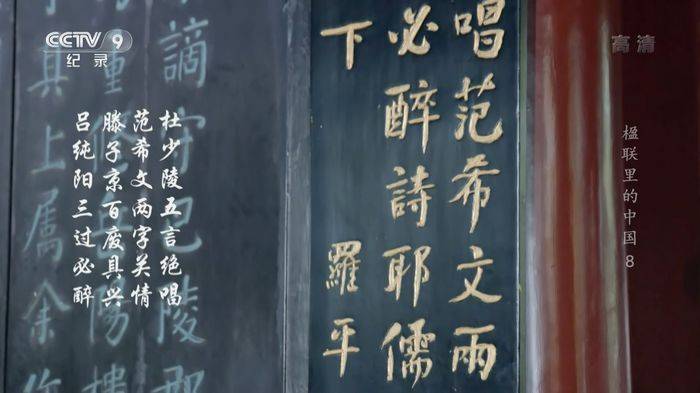 CCTV 9
纪录
高清
楹联里的中国 8
杜少陵五言绝唱
范希文两字关情
滕子京百废具兴
吕纯阳三过必醉
唱范希文兩
必醉詩耶儒
下 羅平
謫守巴陵郡
重 陽樓
其上属余作